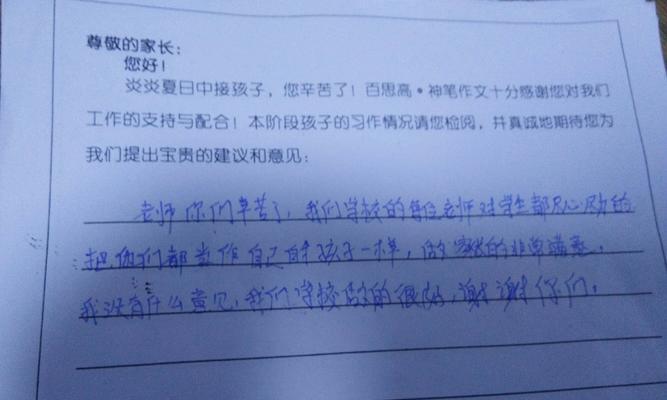 尊敬的家长：
您好！
炎炎夏日中接孩子，您辛苦了！百思高·神笔作文十分感谢您对我们
工作的支持与配合！本阶段孩子的习作情况请您检阅，并真诚地期待您为
我们提出宝贵的建议和意见：
老师你们辛苦了，我们学校的每位老师对学生都尽心尽力的
把他们都当作自己的孩子一样，做家长的非常满意。
我没有什么意见，我们学校做的很好，谢谢你们。